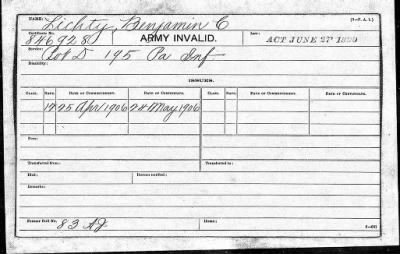 NAME: Lichty, Benjamin C [3-P. A. I.]
Certificate No. 846928 ARMY INVALID. Rate: ACT JUNE 27 1890
Service: Co. D 195 Pa Inf
Disability:
ISSUES.
CLASS. RATE. DATE OF COMMENCEMENT. DATE OF CERTIFICATE. CLASS. RATE. DATE OF COMMENCEMENT. DATE OF CERTIFICATE.
25 Apr 1906 24 May 1906
Transferred from: Transferred to:
Died: Bureau notified:
Remarks:
Former Roll No. 83 Home: